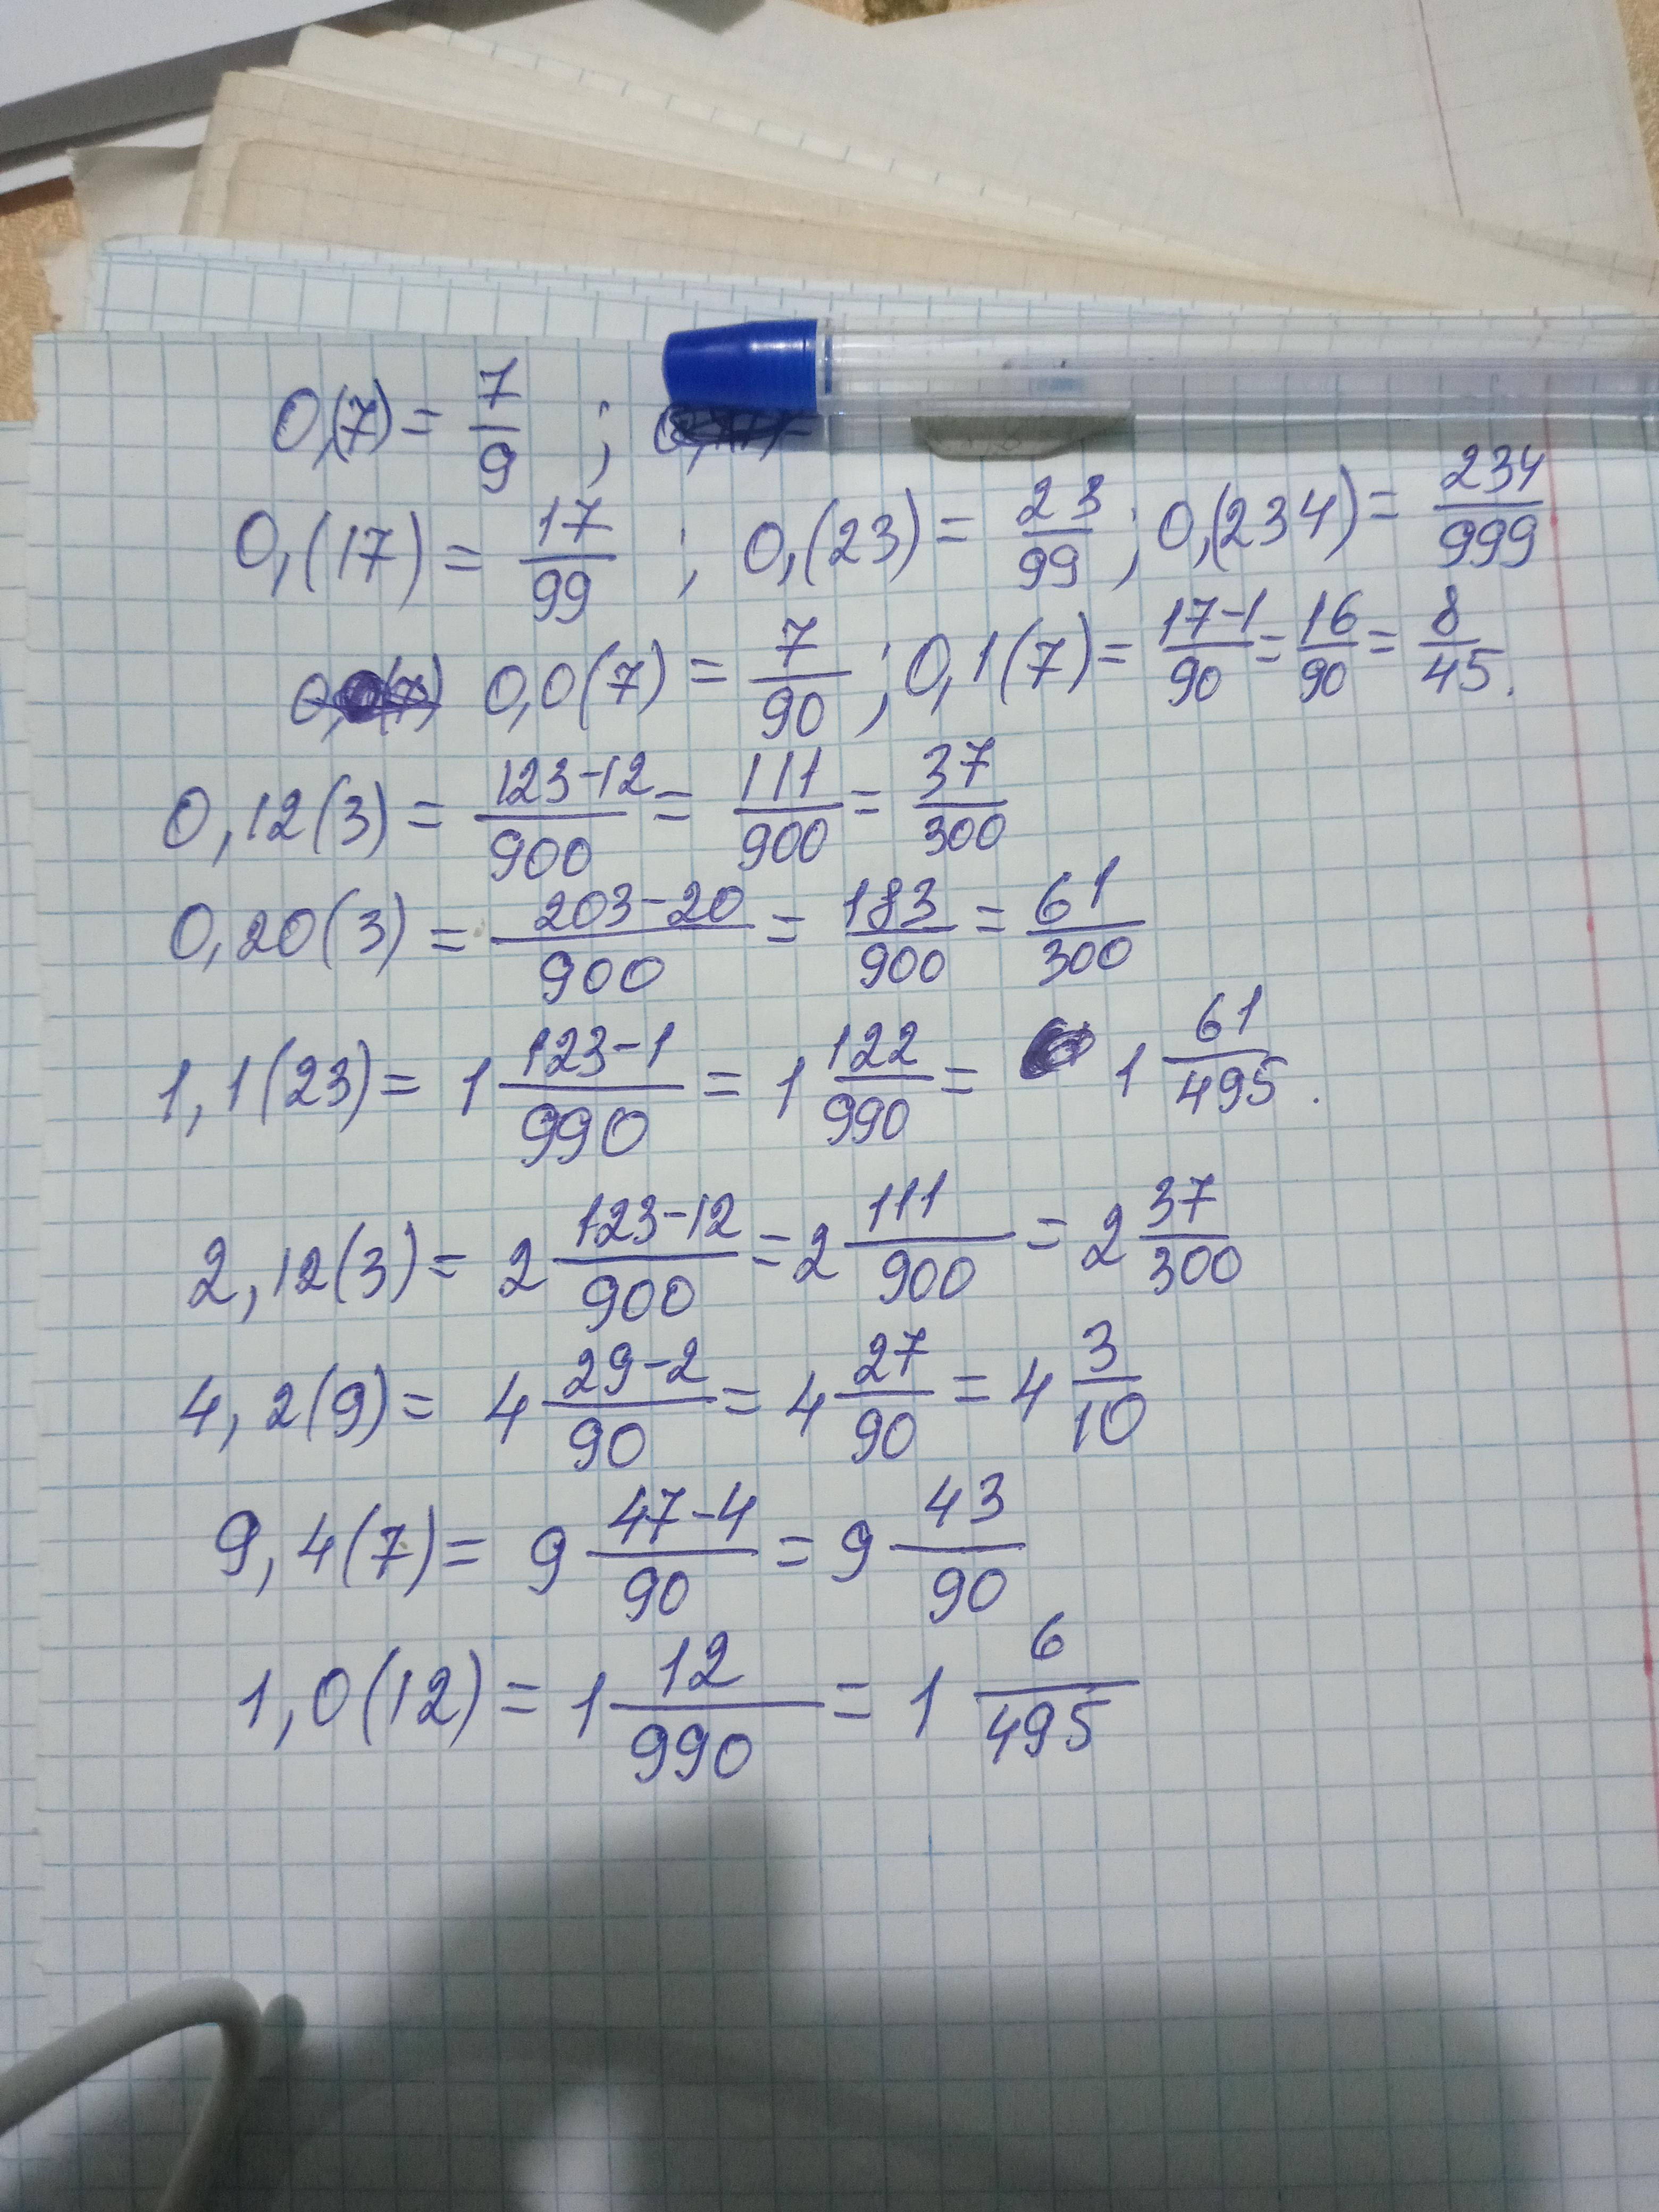 0,(7) = 7/9 ;
0,(17) = 17/99 ; 0,(23) = 23/99 ; 0,(234) = 234/999
0,0(7) = 7/90 ; 0,1(7) = 17-1/90 = 16/90 = 8/45.
0,12(3) = 123-12/900 = 111/900 = 37/300
0,20(3) = 203-20/900 = 183/900 = 61/300
1,1(23) = 1 123-1/990 = 1 122/990 = 1 61/495.
2,12(3) = 2 123-12/900 = 2 111/900 = 2 37/300
4,2(9) = 4 29-2/90 = 4 27/90 = 4 3/10
9,4(7) = 9 47-4/90 = 9 43/90
1,0(12) = 1 12/990 = 1 6/495